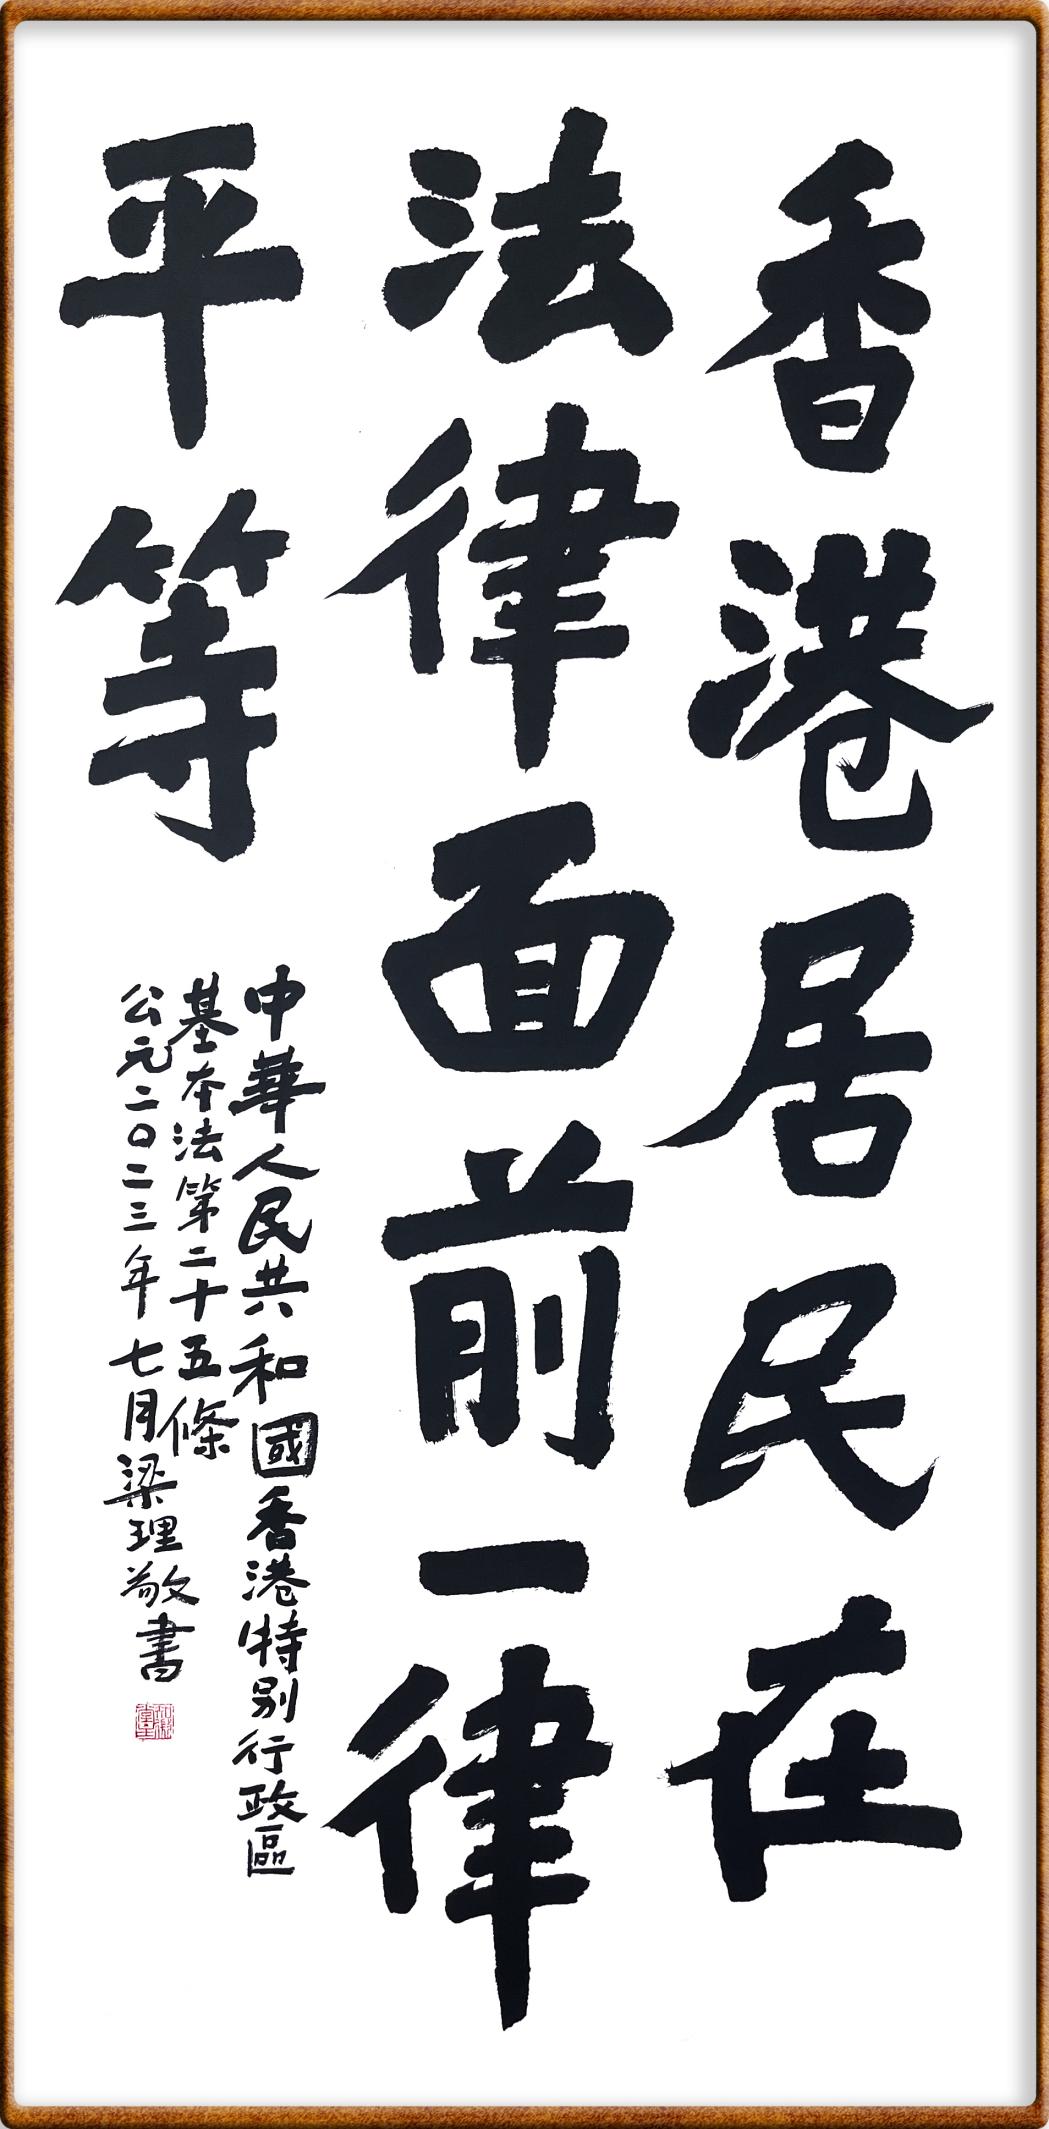 香港居民在
法律面前一律
平等
中華人民共和國香港特別行政區
基本法第二十五條
公元二〇二三年七月梁理敬書